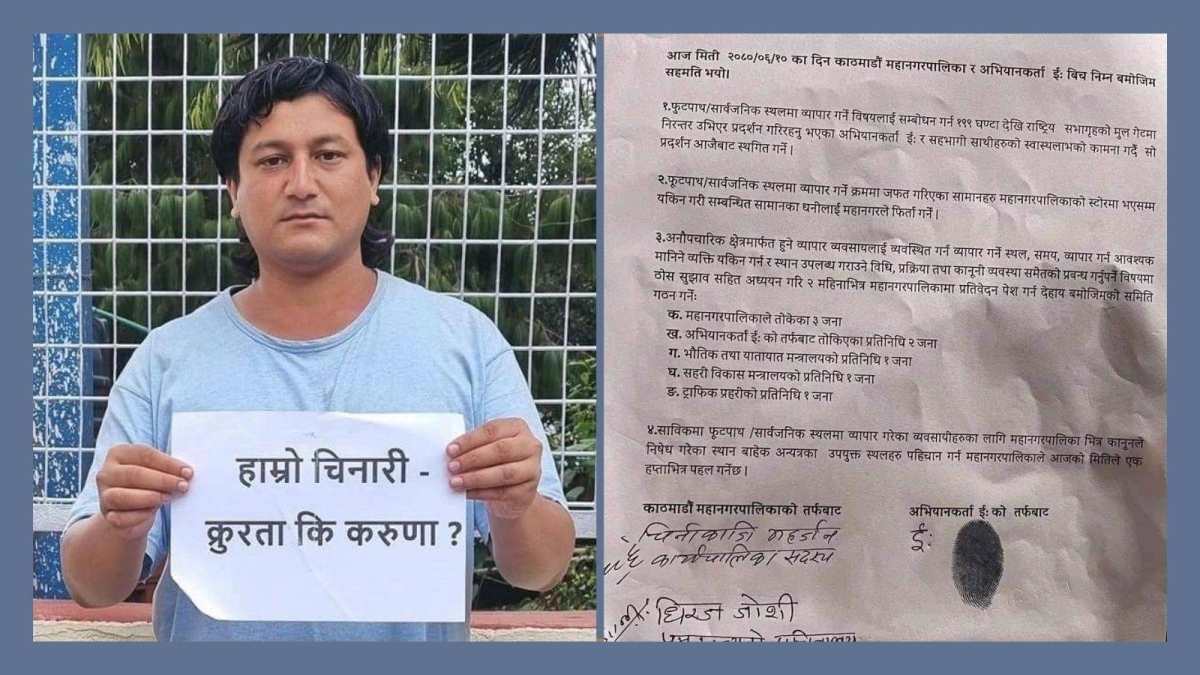 हाम्रो चिनारी -
क्रुरता कि करुणा ?
आज मिती २०८०/०६/१० का दिन काठमाडौं महानगरपालिका र अभियानकर्ता ई: बिच निम्न बमोजिम
सहमति भयो।
१.फूटपाथ/सार्वजनिक स्थलमा व्यापार गर्ने विषयलाई सम्बोधन गर्न १९९ घण्टा देखि राष्ट्रिय सभागृहको मुल गेटमा
निरन्तर उभिएर प्रदर्शन गरिरहनु भएका अभियानकर्ता ई: र सहभागी साथीहरुको स्वास्थलाभको कामना गर्दै सो
प्रदर्शन आजैबाट स्थगित गर्ने ।
२.फूटपाथ/सार्वजनिक स्थलमा व्यापार गर्ने क्रममा जफत गरिएका सामानहरु महानगरपालिकाको स्टोरमा भएसम्म
यकिन गरी सम्बन्धित सामानका धनीलाई महानगरले फिर्ता गर्ने ।
३.अनौपचारिक क्षेत्रमार्फत हुने व्यापार व्यवसायलाई व्यवस्थित गर्न व्यापार गर्ने स्थल, समय, व्यापार गर्न आवश्यक
मानिने व्यक्ति यकिन गर्न र स्थान उपलब्ध गराउने विधि, प्रक्रिया तथा कानूनी व्यवस्था समेतको प्रबन्ध गर्नुपर्ने विषयमा
ठोस सुझाव सहित अध्ययन गरि २ महिनाभित्र महानगरपालिकामा प्रतिवेदन पेश गर्न देहाय बमोजिमको समिति
गठन गर्नेः
क. महानगरपालिकाले तोकेका ३ जना
ख. अभियानकर्ता ई: को तर्फबाट तोकिएका प्रतिनिधि २ जना
ग. भौतिक तथा यातायात मन्त्रालयको प्रतिनिधि १ जना
घ. सहरी विकास मन्त्रालयको प्रतिनिधि १ जना
ङ. ट्राफिक प्रहरीको प्रतिनिधि १ जना
४.साविकमा फूटपाथ /सार्वजनिक स्थलमा व्यापार गरेका व्यवसायीहरुका लागि महानगरपालिका भित्र कानुनले
निषेध गरेका स्थान बाहेक अन्यत्रका उपयुक्त स्थलहरु पहिचान गर्न महानगरपालिकाले आजको मितिले एक
हप्ताभित्र पहल गर्नेछ ।
काठमाडौं महानगरपालिकाको तर्फबाट
चिनीकाजि महर्जन
कार्यपालिका सदस्य
धिरज जोशी
अभियानकर्ता ई: को तर्फबाट
ई: